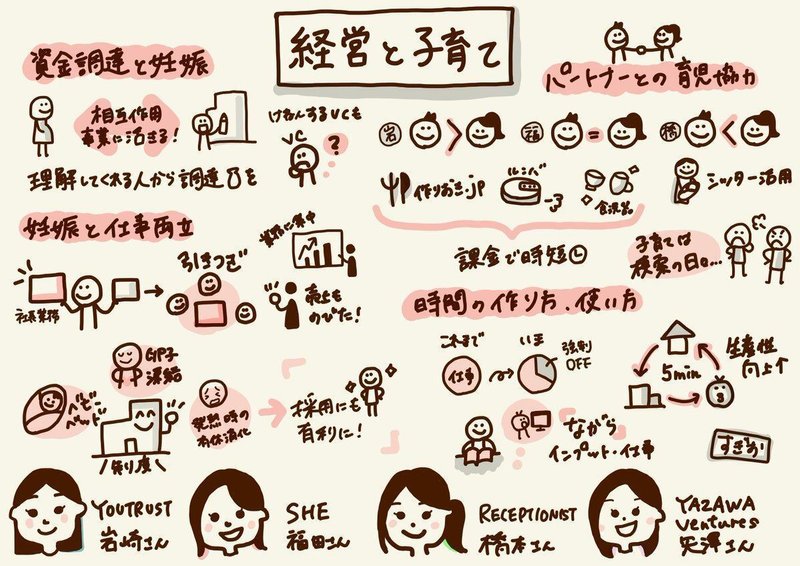 経営と子育て
資金調達と妊娠
相互作用
事業に活きる!
けねんするVCも
VC
?
理解してくれる人から調達を
妊娠と仕事両立
社長業務
引きつぎ
業務に集中
売上も
のびた!
卵子
凍結
ベビー
ベッド
制度
発熱時の
有休消化
採用にも
有利に!
パートナーとの育児協力
岩 >
福 =
橋 <
作りおき.jp
ルンバ
食洗器
シッター活用
課金で時短
子育ては
模索の日々…
時間の作り方、使い方
これまで
仕事
いま
強制
OFF
5min
生産性
向上↑
ながら
インプット・仕事
すぎおか
YOUTRUST
岩崎さん
SHE
福田さん
RECEPTIONIST
橋本さん
YAZAWA
Ventures
矢澤さん